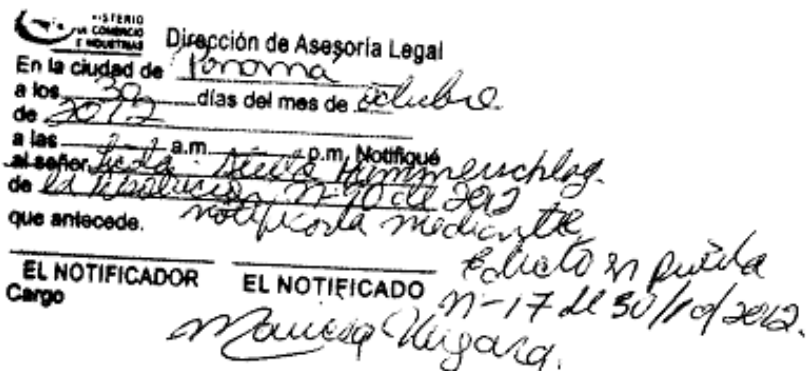 MINISTERIO
DE COMERCIO
E INDUSTRIAS
Dirección de Asesoría Legal
En la ciudad de Panamá
a los 30 días del mes de octubre
de 2012
a las a.m. p.m. Notifiqué
al señor Licda. Hammerschlag.
de la Resolución N-90 de 2012
que antecede. notificada mediante
Edicto en puerta
N-17 del 30/10/2012.
EL NOTIFICADOR EL NOTIFICADO
Cargo
Vergara.